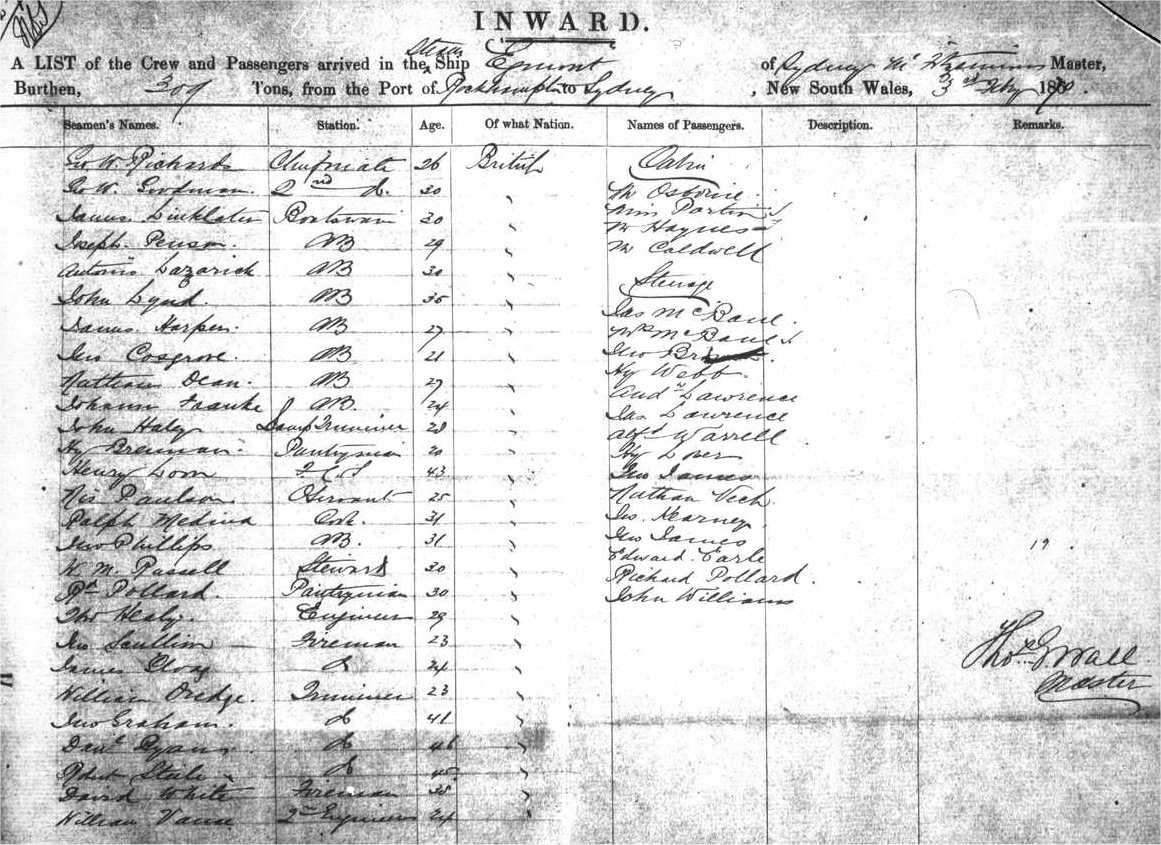 INWARD.
A LIST of the Crew and Passengers arrived in the Steam Ship Egmont of Sydney Master,
Burthen, 309 Tons, from the Port of Rockhampton to Sydney, New South Wales, 3rd Feby 18
Seamen's Names. Station. Age. Of what Nation. Names of Passengers. Description. Remarks.
Geo W. Richards Chief mate 26 British Cabin
Geo W. Goodman. 2nd Do. 30 " Mr Osborne
James Linklater Boatswain 30 " Miss Porter
Joseph AB 29 " Mr Haynes
Antonio Lazarich AB 30 " Mr Caldwell
John Lynd. AB 35 " Steerage
James Harper. AB 27 " Jas McBane.
Jno Cosgrove. AB 21 " Mrs McBane
Nathan Dean. AB 27 " Jno
Johann Franke AB. 24 " Hy Webb.
John Haley Trimmer 28 " Andw Lawrence
Hy Brennan. Pantryman 20 " Jas Lawrence
Henry Lorn 43 " Alfd Warrell
Nis Paulson Servant 25 " Hy
Ralph Medina Cook. 31 " Jno James
Jno Phillips AB. 31 " Nathan Vech
W. M. Russell Steward 30 " Jas. Kearney
Rd Pollard. Pantryman 30 " Jno James
Thos Healy. Engineer 29 " Edward Earle
Jno Scullion Fireman 23 " Richard Pollard.
James Do 24 " John Williams
William Trimmer 23 "
Jno Graham. Do 41 "
Danl Ryan Do 46 "
Robert Steele Do 45 "
David White Fireman 38 "
William Vance 2nd Engineer 24 "
19
Thos G Wall
Master